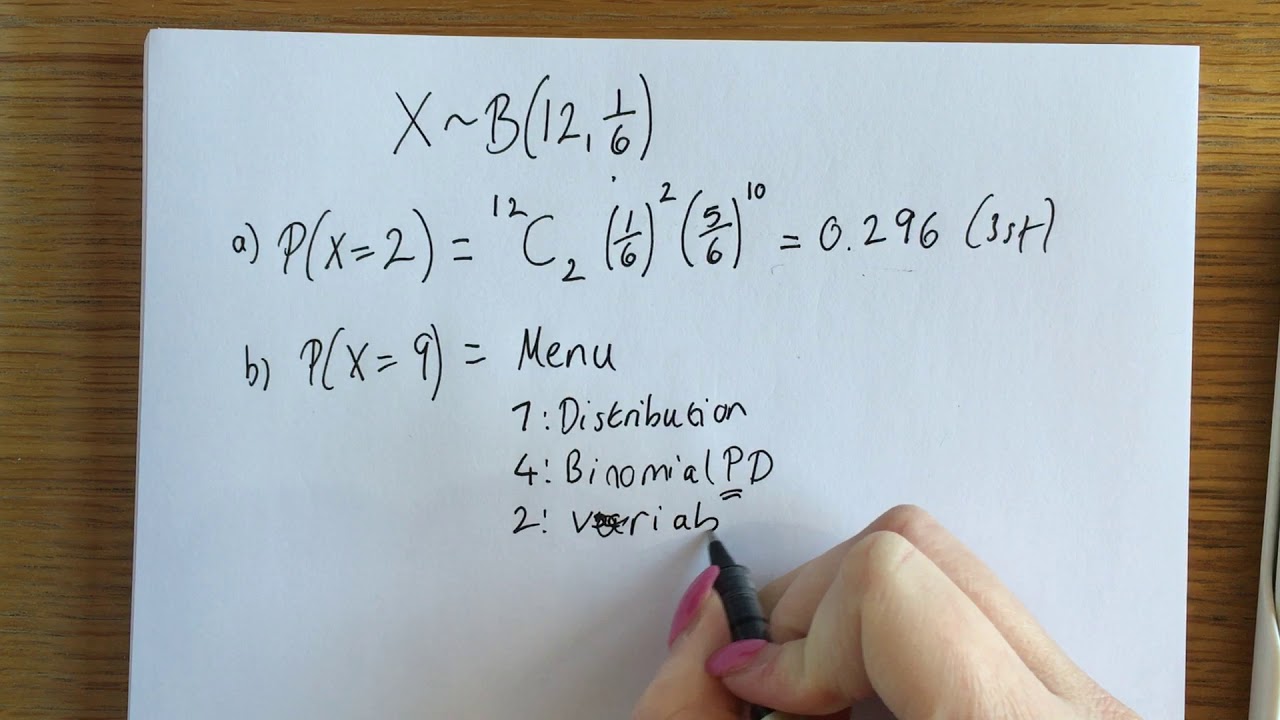 X~B(12, 1/6)
a) P(X=2) = ¹²C₂ (1/6)² (5/6)¹⁰ = 0.296 (3sf)
b) P(X=9) = Menu
7: Distribution
4: Binomial PD
2: variab